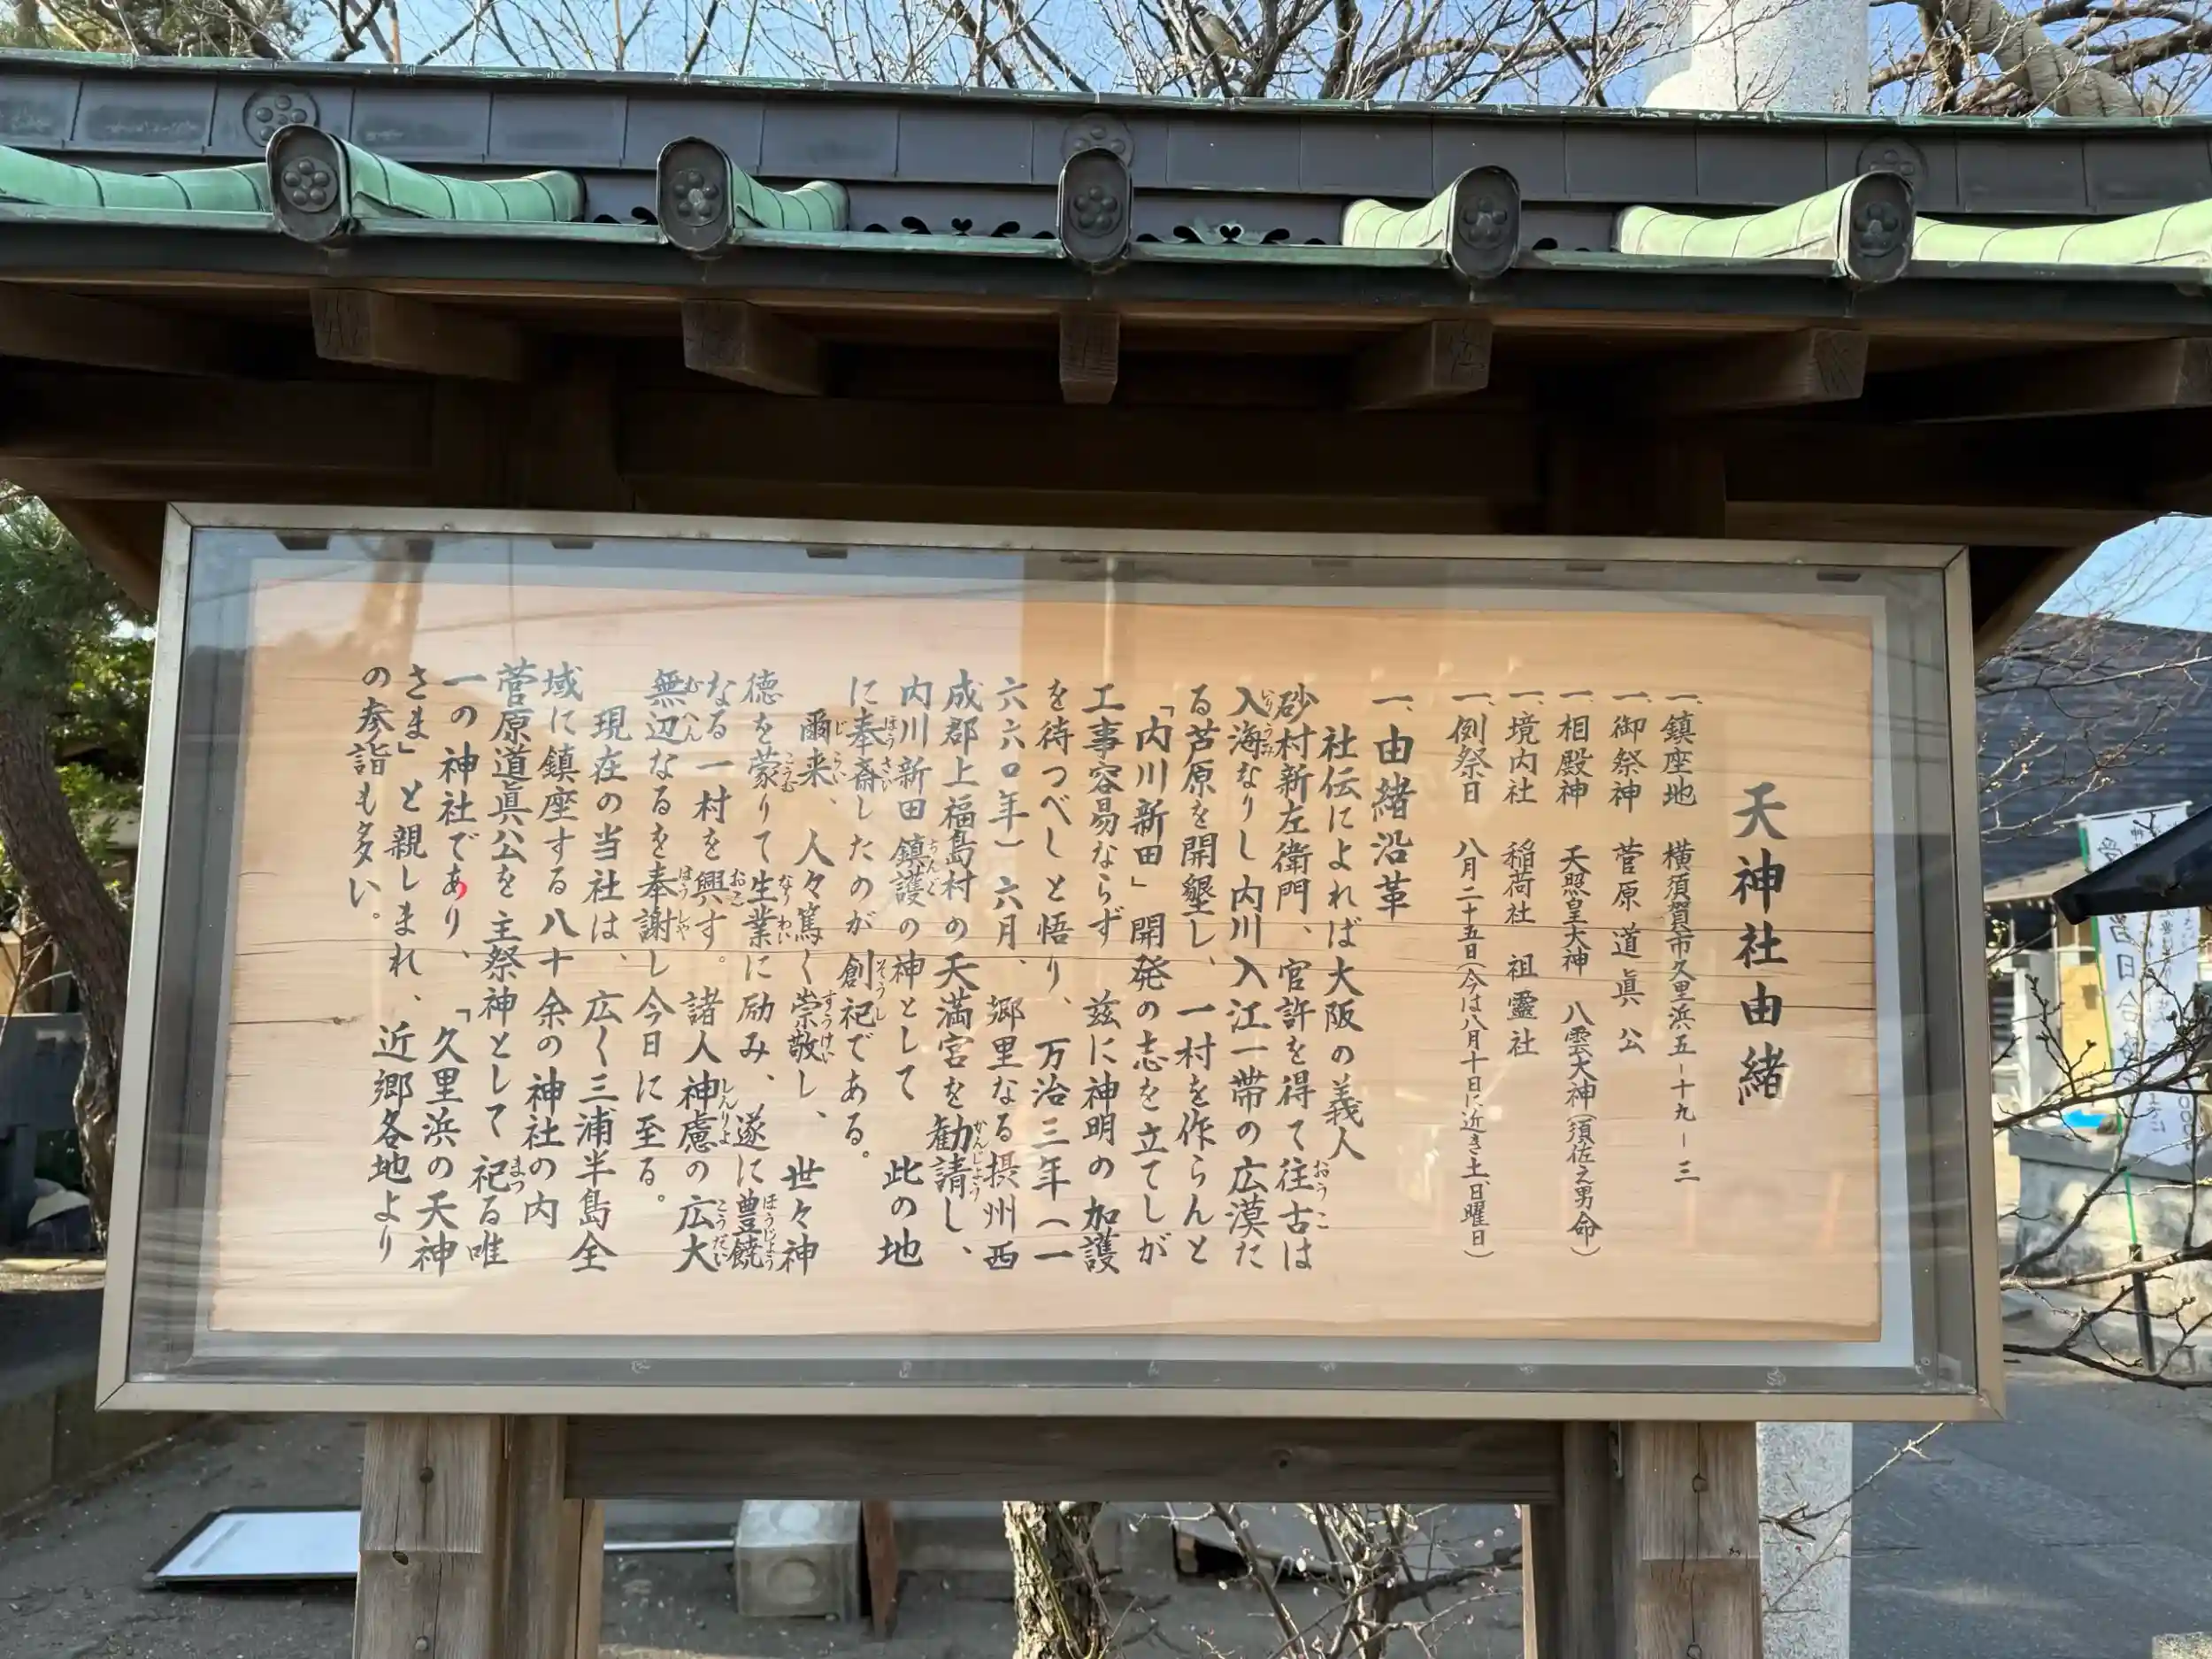 天神社由緒
一、鎮座地　横須賀市久里浜五－十九－三
一、御祭神　菅原道眞公
一、相殿神　天照皇大神　八雲大神（須佐之男命）
一、境内社　稲荷社　祖霊社
一、例祭日　八月二十五日（今は八月十日に近き土、日曜日）
一、由緒沿革
社伝によれば大阪の義人
砂村新左衛門、官許を得て往古は
入海なりし内川入江一帯の広漠た
る芦原を開墾し、一村を作らんと
「内川新田」開発の志を立てしが
工事容易ならず　茲に神明の加護
を待つべしと悟り、万治三年（一
六六〇年）六月、郷里なる摂州西
成郡上福島村の天満宮を勧請し、
内川新田鎮護の神として　此の地
に奉斎したのが創祀である。
爾来、人々篤く崇敬し、世々神
徳を蒙りて生業に励み、遂に豊饒
なる一村を興す。諸人神慮の広大
無辺なるを奉謝し今日に至る。
現在の当社は、広く三浦半島全
域に鎮座する八十余の神社の内
菅原道眞公を主祭神として祀る唯
一の神社であり、「久里浜の天神
さま」と親しまれ、近郷各地より
の参詣も多い。